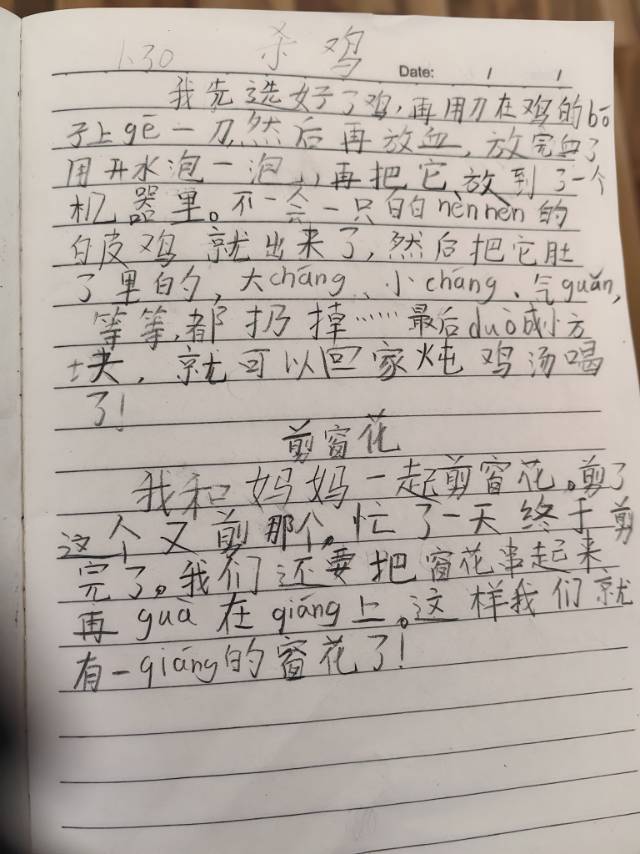 1.30 杀鸡
Date: / /
我先选好了鸡，再用刀在鸡的bō
子上gē一刀,然后再放血，放完血了
用开水泡一泡，再把它放到了一个
机器里。不一会一只白白nènnèn的
白皮鸡就出来了，然后把它肚
了里的，大cháng、小cháng、气guǎn，
等等，都扔掉……最后duò成小方
块，就可以回家炖鸡汤喝
了！
剪窗花
我和妈妈一起剪窗花。剪了
这个又剪那个。忙了一天终于剪
完了。我们还要把窗花串起来
再guà在qiáng上。这样我们就
有一qiáng的窗花了！